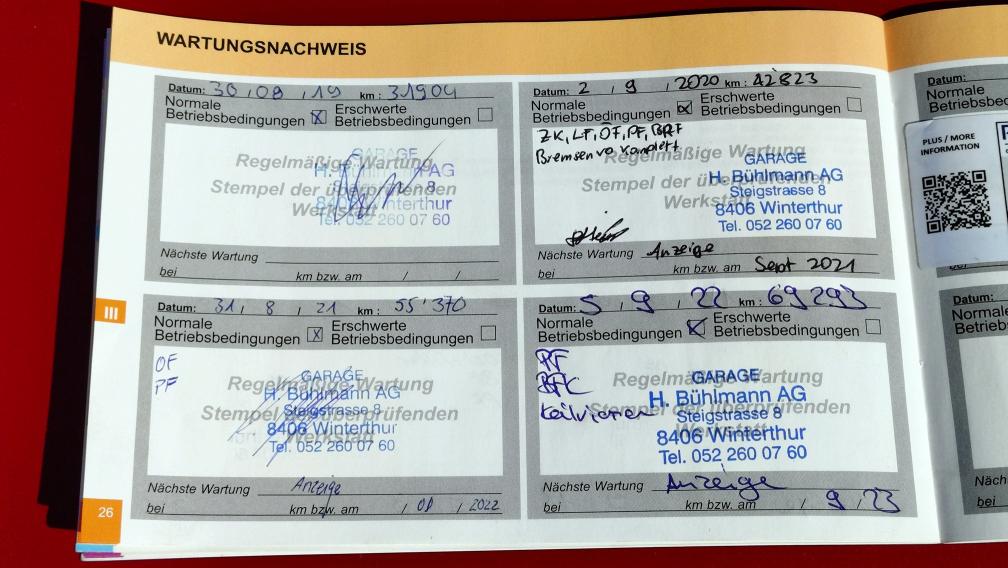 WARTUNGSNACHWEIS
Datum: 30 / 08 / 19 km: 31904
Normale Betriebsbedingungen X Erschwerte Betriebsbedingungen
Regelmäßige Wartung
Stempel der überprüfenden Werkstatt
GARAGE
8406 Winterthur
Tel. 052 260 07 60
Nächste Wartung
bei km bzw. am / /
Datum: 2 / 9 / 2020 km: 42823
Normale Betriebsbedingungen X Erschwerte Betriebsbedingungen
ZK, LF, ÖF, PF, BRF
Bremsen vo komplett
Regelmäßige Wartung
Stempel der überprüfenden Werkstatt
GARAGE
H. Bühlmann AG
Steigstrasse 8
8406 Winterthur
Tel. 052 260 07 60
Nächste Wartung Anzeige
bei km bzw. am Sept 2021
III
Datum: 31 / 8 / 21 km: 55'370
Normale Betriebsbedingungen X Erschwerte Betriebsbedingungen
OF
PF
Regelmäßige Wartung
Stempel der überprüfenden Werkstatt
GARAGE
H. Bühlmann AG
Steigstrasse 8
8406 Winterthur
Tel. 052 260 07 60
Nächste Wartung Anzeige
bei km bzw. am / 08 / 2022
Datum: 5 / 9 / 22 km: 69293
Normale Betriebsbedingungen X Erschwerte Betriebsbedingungen
PF
Keilriemen
Regelmäßige Wartung
Stempel der überprüfenden Werkstatt
GARAGE
H. Bühlmann AG
Steigstrasse 8
8406 Winterthur
Tel. 052 260 07 60
Nächste Wartung Anzeige
bei km bzw. am / 9 / 23
26
Datum:
Normale
PLUS / MORE
INFORMATION
Datum: